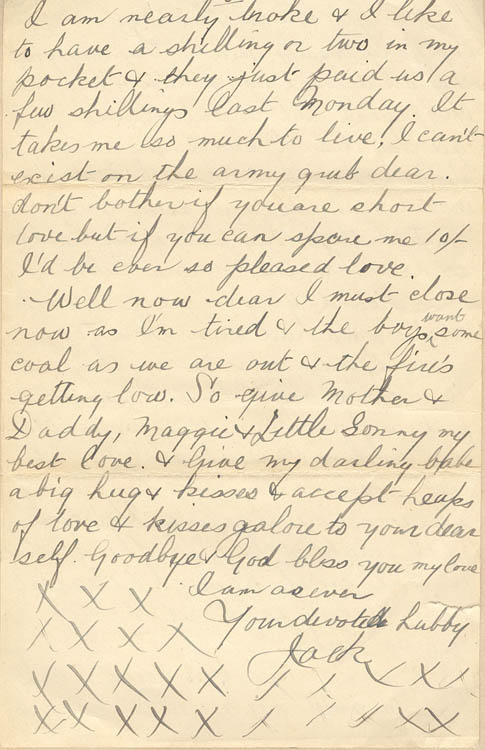 I am nearly broke & I like
to have a shilling or two in my
pocket & they just paid us a
few shillings last Monday. It
takes me so much to live, I can't
exist on the army grub dear.
don't bother if you are short
love but if you can spare me 10/-
I'd be ever so pleased love.
Well now dear I must close
now as I'm tired & the boys want some
coal as we are out & the fire's
getting low. So give Mother &
Daddy, Maggie & Little Sonny my
best love. & Give my darling babe
a big hug & kisses & accept heaps
of love & kisses galore to your dear
self. Goodbye & God bless you my love
I am as ever
X X X
Your devoted hubby
X X X X
Jack
X X X X X / / / X X
X X X X X X / / / X X